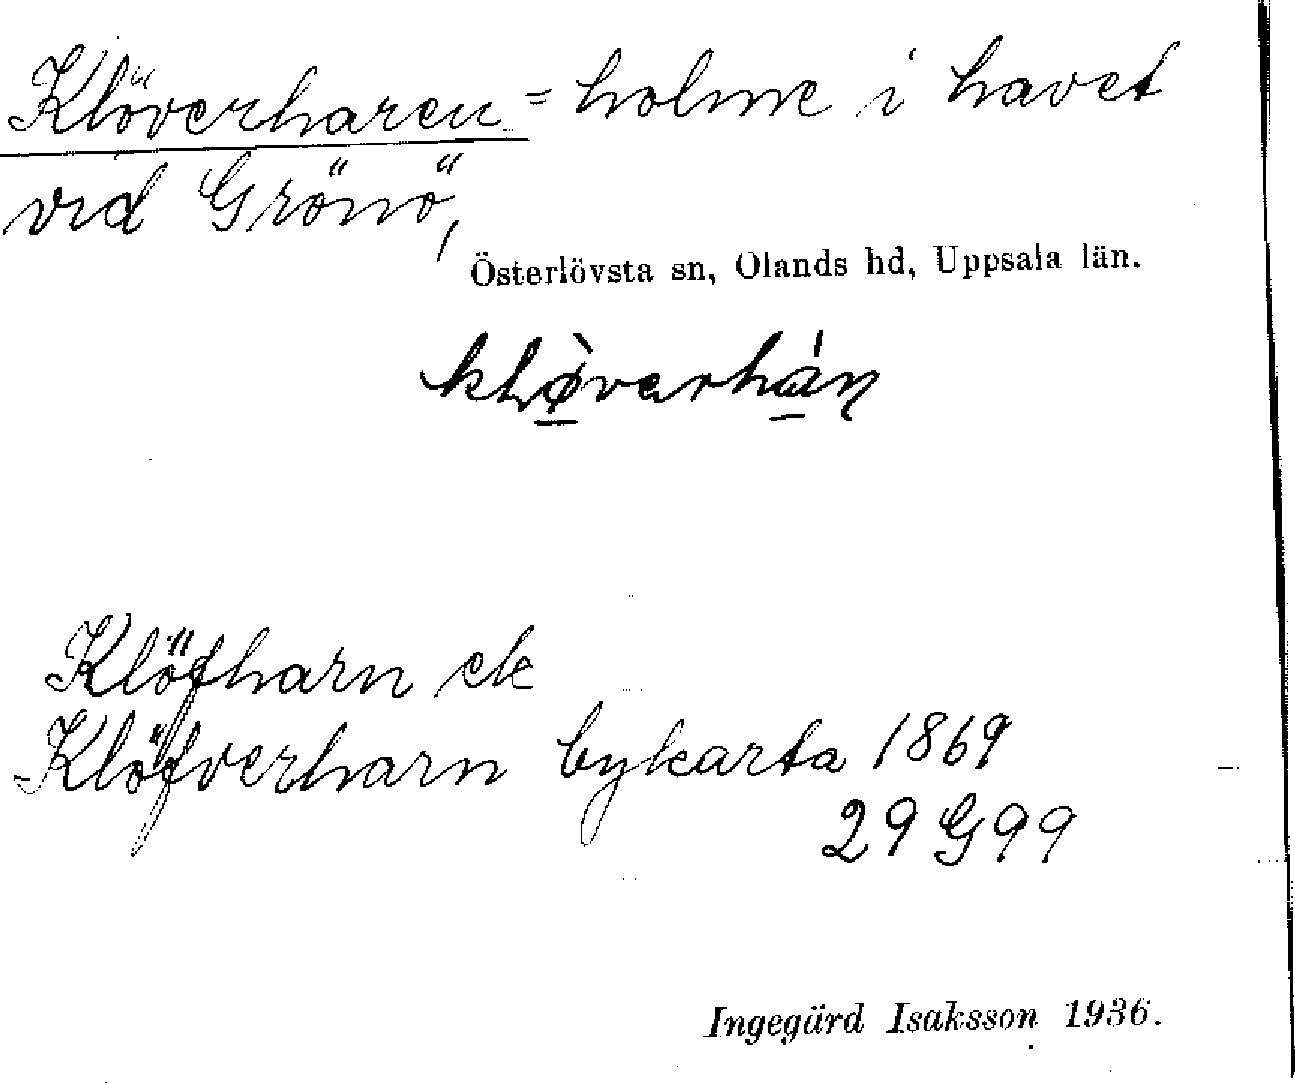 Klöverharen = holme i havet
vid Grönö,
Österlövsta sn, Olands hd, Uppsala län.
klø̀verhán
Klöfharn ek
Klöfverharn bykarta 1869
29 G 99
Ingegärd Isaksson 1936.